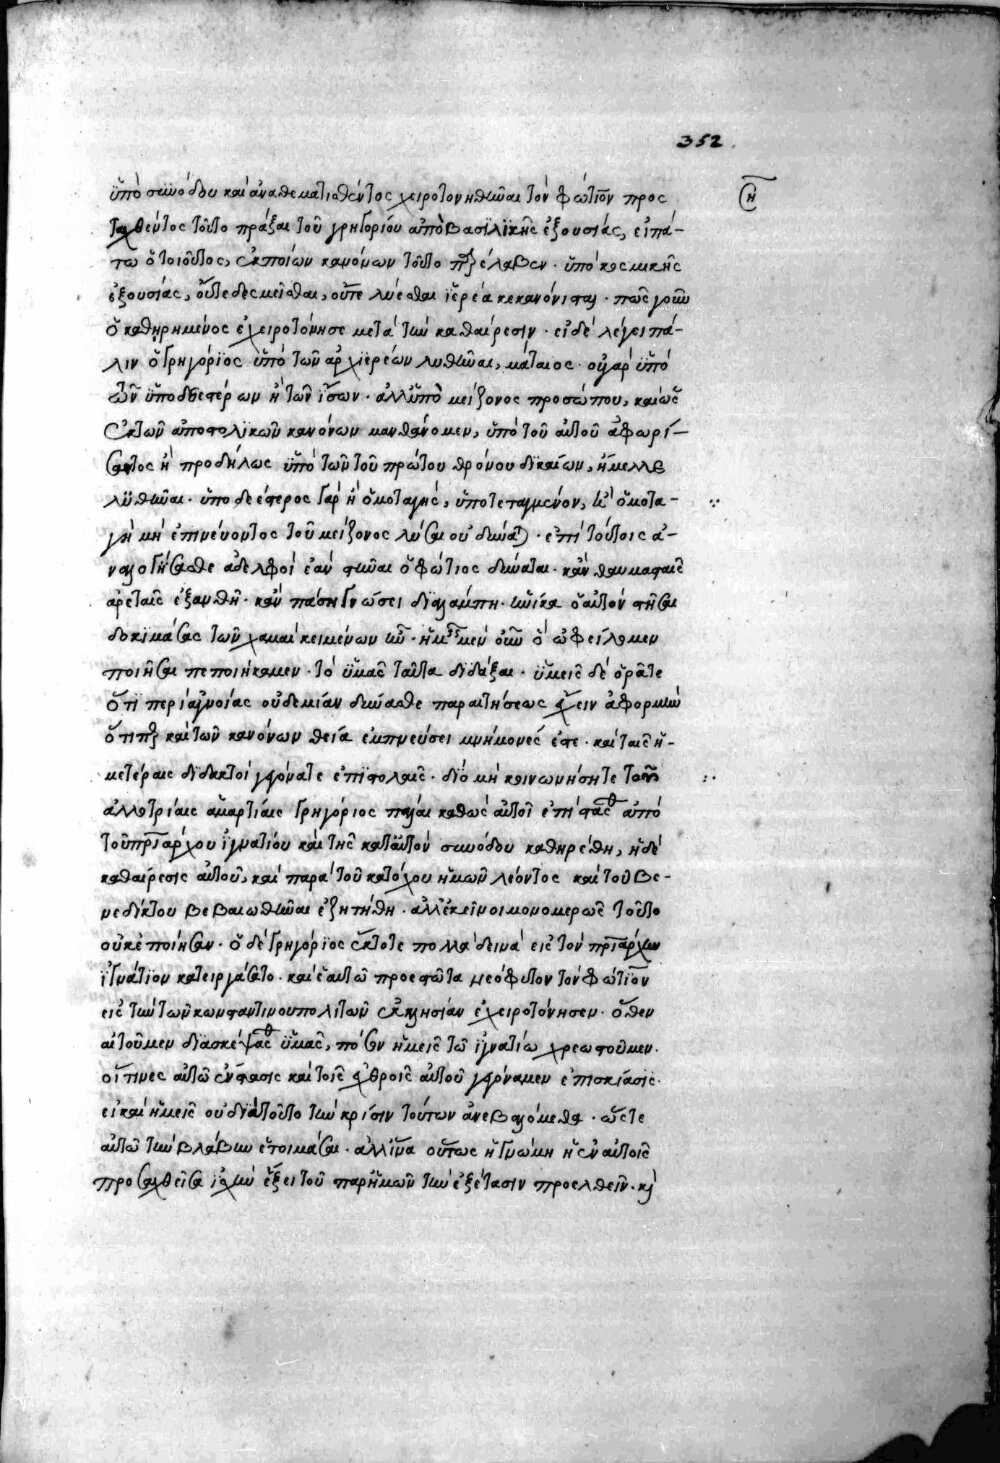 352
ὑπὸ συνόδου καὶ ἀναθεματισθέντος χειροτονηθῆναι τὸν φώτιον προς
ταχθέντος τοῦτο πράξαι τοῦ γρηγορίου ἀπὸ βασιλικῆς ἐξουσίας, εἰπά-
τω ὁ τοιοῦτος, ἐκ ποίων κανόνων τοῦτο παρέλαβεν · ὑπὸ κοσμικῆς
ἐξουσίας, οὔτε δεσμεῖσθαι, οὔτε λύεσθαι ἱερέα κεκανόνισται · πῶς γοῦν
ὁ καθηρημένος ἐχειροτόνησε μετὰ τὴν καθαίρεσιν · εἰ δὲ λέγει πά-
λιν ὁ γρηγόριος ὑπὸ τῶν ἀρχιερέων λυθῆναι, μάταιος · οὐ γὰρ ὑπὸ
τῶν ὑποδεεστέρων ἢ τῶν ἴσων · ἀλλ' ὑπὸ μείζονος προσώπου, καὶ ὡς
ἐκ τῶν ἀποστολικῶν κανόνων μανθάνομεν, ὑπὸ τοῦ αὐτοῦ ἀφωρί-
σαντος ἢ προδήλως ὑπὸ τῶν τοῦ πρώτου θρόνου δικαίων, ἤμελλε
λυθῆναι · ὑποδεέστερος γὰρ ἢ ὁμοταγὴς, ὑποτεταγμένον, ἢ ὁμοτα-
γῆ μὴ ἐπινεύοντος τοῦ μείζονος λῦσαι οὐ δύναται · ἐπὶ τούτοις ἀ-
ναλογήσασθε ἀδελφοὶ ἐὰν στῆναι ὁ φώτιος δύναται · κἂν θαυμασταῖς
ἀρεταῖς ἐξανθῇ · κἂν πάσῃ γνώσει διαλάμπῃ · ἡνίκα ὁ αὐτὸν στῆσαι
δοκιμάσας τῶν χαμαὶ κειμένων ἦν · ἡμεῖς μὲν οὖν ὃ ὠφείλομεν
ποιῆσαι πεποιήκαμεν · τὸ ὑμᾶς ταῦτα διδάξαι · ὑμεῖς δὲ ὁρᾶτε
ὅτι περὶ ἀγνοίας οὐδεμίαν δύνασθε παραιτήσεως ἔχειν ἀφορμὴν
ὅτιπερ καὶ τῶν κανόνων θείᾳ ἐμπνεύσει μνήμονές ἐστε · καὶ ταῖς ἡ-
μετέραις διδακτοὶ γεγόνατε ἐπιστολαῖς · διὸ μὴ κοινωνήσητε ταῖς
ἀλλοτρίαις ἁμαρτίαις γρηγόριος πάλαι καθὼς αὐτοὶ ἐπίστασθε ἀπὸ
τοῦ πατριάρχου ἰγνατίου καὶ τῆς κατ' αὐτὸν συνόδου καθηρέθη, ἡ δὲ
καθαίρεσις αὐτοῦ, καὶ παρὰ τοῦ κατόχου ἡμῶν λέοντος καὶ τοῦ βε-
νεδίκτου βεβαιωθῆναι ἐζητήθη · ἀλλ' ἐκεῖνοι μονομερῶς τοῦτο
οὐκ ἐποίησαν · ὁ δὲ γρηγόριος ἔκτοτε πολλὰ δεινὰ εἰς τὸν πατριάρχην
ἰγνάτιον κατειργάσατο · καὶ ἑαυτῷ προεστῶτα νεόφυτον τὸν φώτιον
εἰς τὴν τῶν κωνσταντινουπολιτῶν ἐκκλησίαν ἐχειροτόνησεν · ὅθεν
αἰτοῦμεν διασκέψασθαι ὑμᾶς, πόσον ἡμεῖς τῷ ἰγνατίῳ χρεωστοῦμεν ·
οἵτινες αὐτῷ ἔνστασις καὶ τοῖς ἐχθροῖς αὐτοῦ γεγόναμεν ἐπισκίασις ·
εἰ καὶ ἡμεῖς οὐ διὰ τοῦτο τὴν κρίσιν τούτων ἀνεβαλόμεθα · ὥστε
αὐτῷ τὴν βλάβην ἑτοιμάσαι · ἀλλ' ἵνα οὕτως ἡ γνώμη ἡ ἐν αὐτοῖς
προσαχθεῖσα ἰσχὺν ἕξει τοῦ παρ' ἡμῶν τὴν ἐξέτασιν προελθεῖν · καὶ